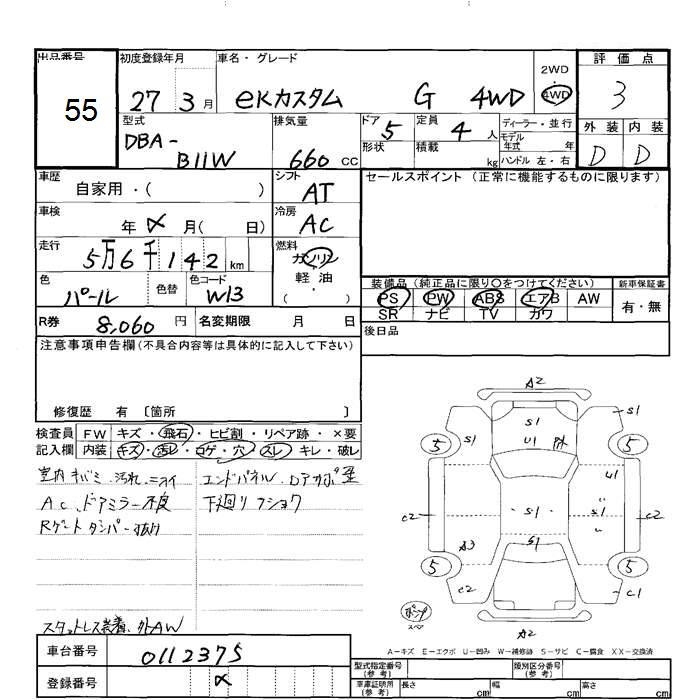 出品番号 初度登録年月 車名・グレード 2WD 評価点
55 27 3月 eKカスタム G 4WD 4WD 3
型式 排気量 ドア 定員 ディーラー・並行 外装 内装
DBA- 5 4人 モデル年式 年 D D
B11W 660 cc 形状 積載 kg ハンドル 左・右
車歴 自家用・( ) シフト AT セールスポイント (正常に機能するものに限ります)
車検 年 〆 月( 日) 冷房 AC
走行 5万6千142km 燃料 ガソリン
軽油
( ・ )
色 パール 色替 色コード W13 装備品(純正品に限り〇をつけてください) 新車保証書
PS PW ABS エアB AW 有・無
SR ナビ TV カワ
R券 8,060円 名変期限 月 日 後日品
注意事項申告欄(不具合内容等は具体的に記入して下さい)
修復歴 有〔箇所 〕
検査員 FW キズ・飛石・ヒビ割・リペア跡・×要
記入欄 内装 キズ・汚レ・コゲ・穴・スレ・キレ・破レ
汚れ エンドパネル
AC ドアミラー不良 下廻り
Rゲートダンパー
スタットレス装着、外AW
A2
S1
S1
S1
U1
5
5
U1
C2
S1
S1
C2
A3
S1
5
5
C2
C1
A2
A-キズ E-エクボ U-凹み W-補修跡 S-サビ C-腐食 XX-交換済
車台番号 0112375 型式指定番号(参考) 類別区分番号(参考)
登録番号 〆 車庫証明用(参考) 長さ cm 幅 cm 高さ cm